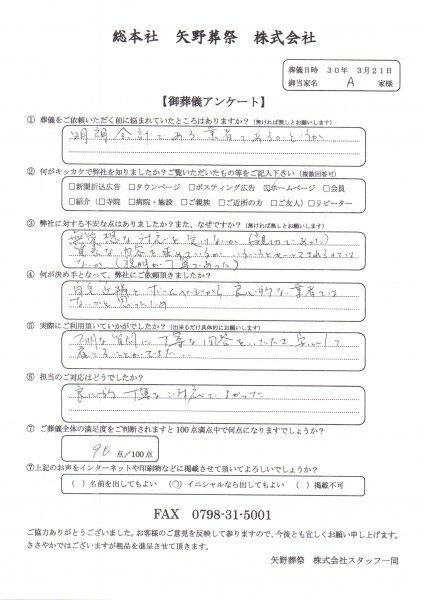 総本社 矢野葬祭 株式会社
葬儀日時 30年 3月21日
御当家名 A 家様
【御葬儀アンケート】
① 葬儀をご依頼いただく前に悩まれていたところはありますか？(無ければ無しとお願いします)
明朗会計である業者であるかどうか
② 何がキッカケで弊社を知りましたか？ご覧いただいたもの等をご記入下さい (複数回答可)
□新聞折込広告 □タウンページ □ポスティング広告 ☑ホームページ □会員
□紹介 (□寺院 □病院・施設 □ご親族 □ご近所の方 □ご友人) □リピーター
③ 弊社に対する不安な点はありましたか？また、なぜですか？(無ければ無しとお願いします)
無愛想な対応を受けないか (親切であった)
ないか (説明が丁寧であった)
④ 何が決め手となって、弊社にご依頼頂きましたか？
ホームページから良心的な業者では
ないかと思ったため
⑤ 実際にご利用頂いていかがでしたか？(出来るだけ具体的にお願いします)
不明な質問に丁寧な回答をいただき安心して
⑥ 担当のご対応はどうでしたか？
良心的 丁寧な対応でよかった
⑦ ご葬儀全体の満足度をご判断されますと100点満点中で何点になりますでしょうか？
90 点／100点
⑦上記のお声をインターネットや印刷物などに掲載させて頂いてよろしいでしょうか？
( ) 名前を出してもよい (○) イニシャルなら出してもよい ( ) 掲載不可
FAX 0798-31-5001
ご協力ありがとうございました。お客様のご意見を反映して参りますので、今後とも宜しくお願い申し上げます。
ささやかではございますが粗品を進呈させて頂きます。
矢野葬祭 株式会社スタッフ一同